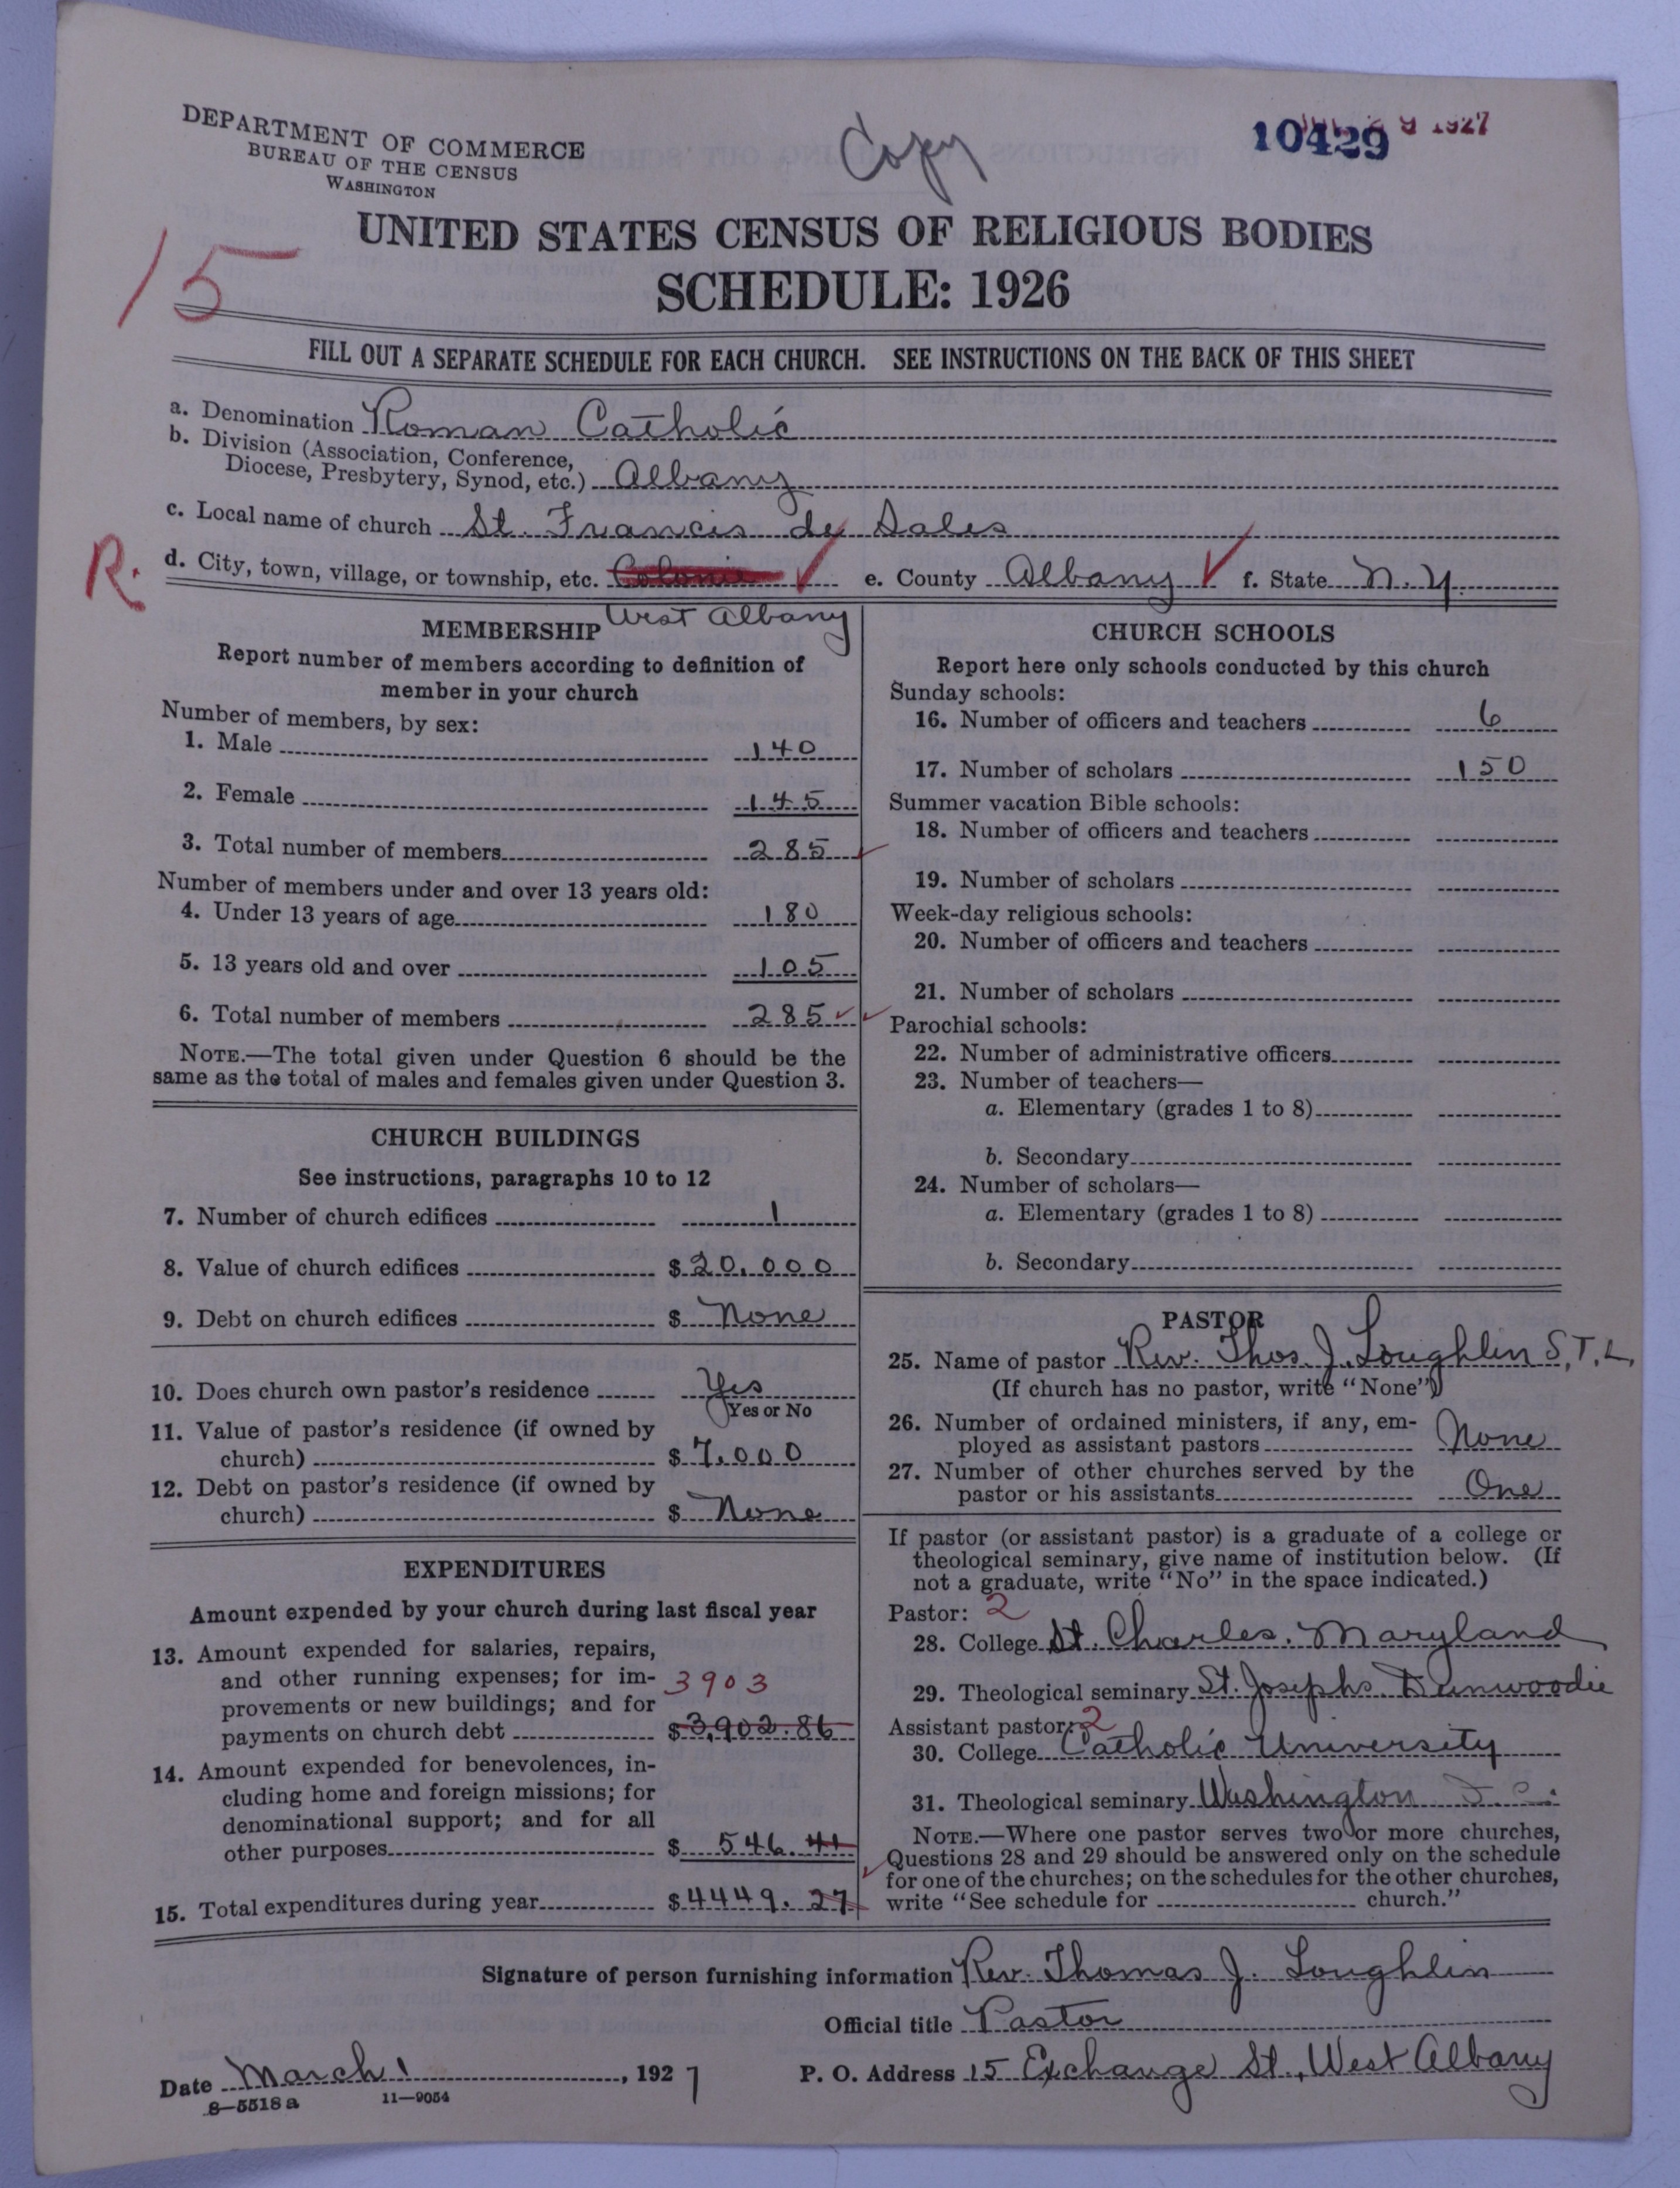 DEPARTMENT OF COMMERCE
BUREAU OF THE CENSUS
WASHINGTON
Copy
10429
9 1927
UNITED STATES CENSUS OF RELIGIOUS BODIES
SCHEDULE: 1926
15
FILL OUT A SEPARATE SCHEDULE FOR EACH CHURCH. SEE INSTRUCTIONS ON THE BACK OF THIS SHEET
a. Denomination Roman Catholic
b. Division (Association, Conference,
Diocese, Presbytery, Synod, etc.) Albany
c. Local name of church St. Francis de Sales
R.
d. City, town, village, or township, etc. Colonie e. County Albany f. State N.Y.
West Albany
MEMBERSHIP
Report number of members according to definition of
member in your church
Number of members, by sex:
1. Male 140
2. Female 145
3. Total number of members 285
Number of members under and over 13 years old:
4. Under 13 years of age 180
5. 13 years old and over 105
6. Total number of members 285
NOTE.—The total given under Question 6 should be the
same as the total of males and females given under Question 3.
CHURCH BUILDINGS
See instructions, paragraphs 10 to 12
7. Number of church edifices 1
8. Value of church edifices $ 20,000
9. Debt on church edifices $ None
10. Does church own pastor's residence Yes
Yes or No
11. Value of pastor's residence (if owned by
church) $ 7,000
12. Debt on pastor's residence (if owned by
church) $ None
EXPENDITURES
Amount expended by your church during last fiscal year
13. Amount expended for salaries, repairs,
and other running expenses; for im- 3903
provements or new buildings; and for
payments on church debt $ 3,902.86
14. Amount expended for benevolences, in-
cluding home and foreign missions; for
denominational support; and for all
other purposes $ 546.41
15. Total expenditures during year $ 4449.27
CHURCH SCHOOLS
Report here only schools conducted by this church
Sunday schools:
16. Number of officers and teachers 6
17. Number of scholars 150
Summer vacation Bible schools:
18. Number of officers and teachers
19. Number of scholars
Week-day religious schools:
20. Number of officers and teachers
21. Number of scholars
Parochial schools:
22. Number of administrative officers
23. Number of teachers—
a. Elementary (grades 1 to 8)
b. Secondary
24. Number of scholars—
a. Elementary (grades 1 to 8)
b. Secondary
PASTOR
25. Name of pastor Rev. Thos. J. Loughlin S.T.L.
(If church has no pastor, write "None")
26. Number of ordained ministers, if any, em-
ployed as assistant pastors None
27. Number of other churches served by the
pastor or his assistants One
If pastor (or assistant pastor) is a graduate of a college or
theological seminary, give name of institution below. (If
not a graduate, write "No" in the space indicated.)
Pastor: 2
28. College St. Charles. Maryland
29. Theological seminary St. Josephs. Dunwoodie
Assistant pastor: 2
30. College Catholic University
31. Theological seminary Washington D.C.
NOTE.—Where one pastor serves two or more churches,
Questions 28 and 29 should be answered only on the schedule
for one of the churches; on the schedules for the other churches,
write "See schedule for church."
Signature of person furnishing information Rev. Thomas J. Loughlin
Official title Pastor
Date March 1, 1927 P. O. Address 15 Exchange St., West Albany
8—5518 a 11—9054